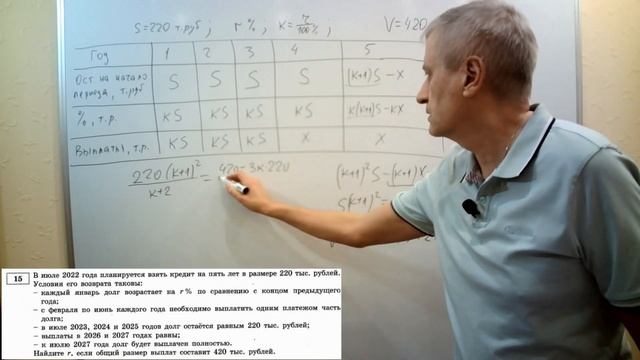 S=220 т.руб ; r %, K = r/100% ; V=420
Год 1 2 3 4 5
Ост. на начало периода, т.руб S S S S (k+1)S-x
%, т.р. KS KS KS KS K(k+1)S-kx
Выплаты, т.р. KS KS KS X X
220(k+1)²/k+2 = 420-3k·220
(k+1)²S-(k+1)X
S(k+1)²=
15
В июле 2022 года планируется взять кредит на пять лет в размере 220 тыс. рублей.
Условия его возврата таковы:
– каждый январь долг возрастает на r % по сравнению с концом предыдущего
года;
– с февраля по июнь каждого года необходимо выплатить одним платежом часть
долга;
– в июле 2023, 2024 и 2025 годов долг остаётся равным 220 тыс. рублей;
– выплаты в 2026 и 2027 годах равны;
– к июлю 2027 года долг будет выплачен полностью.
Найдите r, если общий размер выплат составит 420 тыс. рублей.